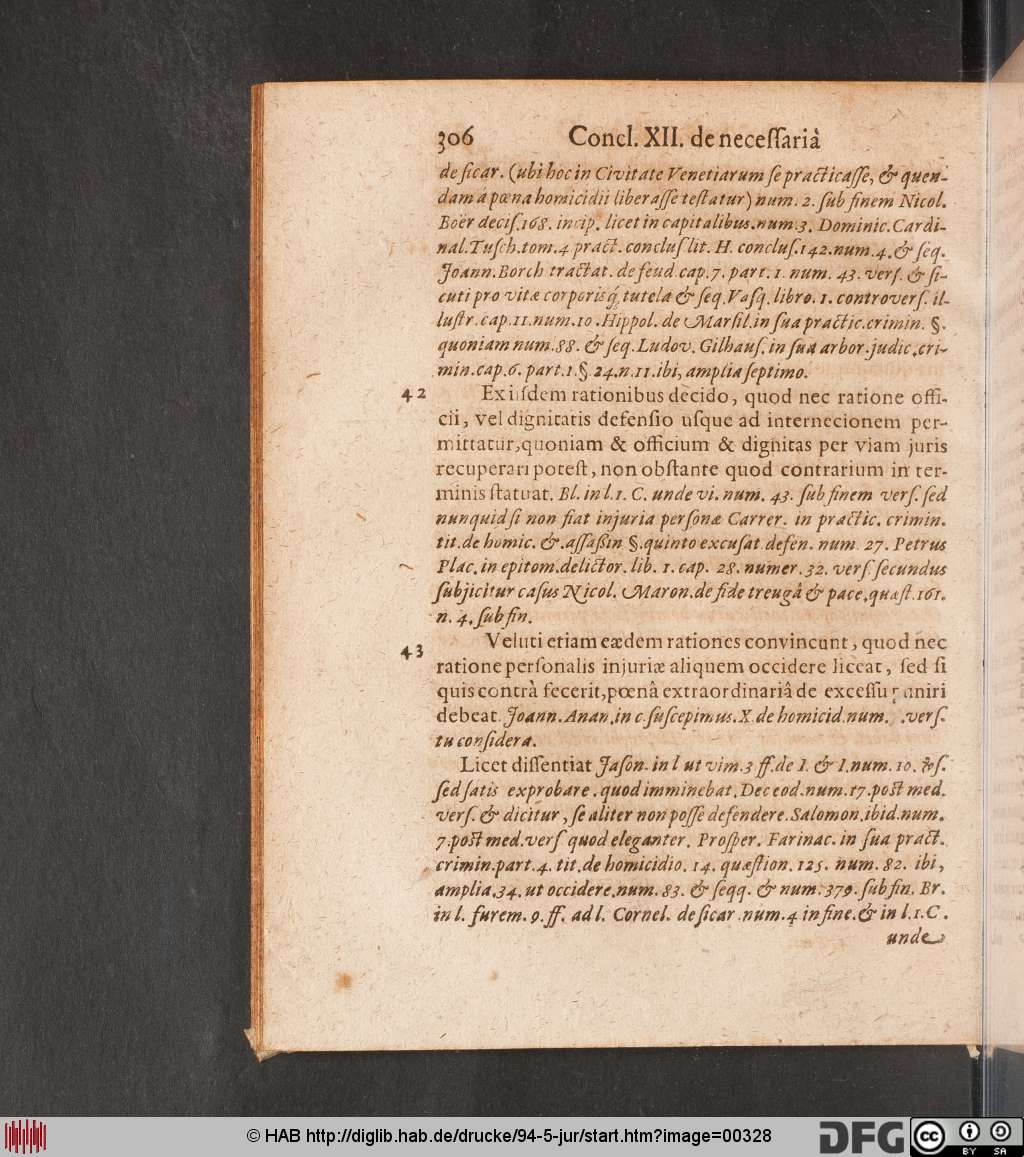 306 Concl. XII. de neceſſarià
de ſicar. (ubi hoc in Civitate Venetiarum ſe practicaſſe, & quen-
dam á pœna homicidii liberaſſe teſtatur) num. 2. ſub finem Nicol.
Boër deciſ.168. incip. licet in capitalibus.num.3. Dominic.Cardi-
nal.Tuſch.tom.4 pract. concluſ lit. H. concluſ.142.num.4.& ſeq.
Joann.Borch tractat. de feud cap.7. part. 1. num. 43. verſ. & ſi-
cuti pro vitæ corporisq́; tutela & ſeq.Vaſq. libro. 1. controverſ. il-
luſtr.cap.11.num.10.Hippol. de Marſil.in ſua practic.crimin. §.
quoniam num.88. & ſeq.Ludov. Gilhauſ. in ſua arbor.judic.cri-
min.cap.6. part.1.§ 24.n.11.ibi, amplia ſeptimo.
42 Ex iiſdem rationibus decido, quod nec ratione offi-
cii, vel dignitatis defenſio uſque ad internecionem per-
mittatur,quoniam & officium & dignitas per viam juris
recuperari poteſt, non obſtante quod contrarium in ter-
minis ſtatuat. Bl. in l.1. C. unde vi. num. 43. ſub finem verſ. ſed
nunquid ſi non fiat injuria perſonæ Carrer. in practic. crimin.
tit.de homic. &.aſſaßin §.quinto excuſat defen. num. 27. Petrus
Plac. in epitom.delictor. lib. 1. cap. 28. numer. 32. verſ ſecundus
ſubjicitur caſus Nicol. Maron.de fide treugâ & pace.quæſt.161.
n. 4. ſub fin.
43 Veluti etiam eædem rationes convincunt, quod nec
ratione perſonalis injuriæ aliquem occidere liceat, ſed ſi
quis contrà fecerit,pœnâ extraordinariâ de exceſſu puniri
debeat. Joann. Anan.in c.ſuſcepimus.X.de homicid.num. .verſ.
tu conſidera.
Licet diſſentiat Jaſon. in l ut vim.3 ff.de I. & I.num. 10. &ſ.
ſed ſatis exprobare.quod imminebat.Dec eod.num.17.poſt med.
verſ. & dicitur, ſe aliter non poſſe defendere.Salomon.ibid.num.
7.poſt med.verſ quod eleganter. Proſper. Farinac. in ſua pract.
crimin.part.4. tit.de homicidio. 14. quæſtion. 125. num. 82. ibi,
amplia.34. ut occidere.num. 83. & ſeqq. & num. 379. ſub fin. Br.
in l. furem. 9. ff. ad l. Cornel. de ſicar num.4 in fine.& in l.1.C.
unde
© HAB http://diglib.hab.de/drucke/94-5-jur/start.htm?image=00328
DFG
cc
BY SA